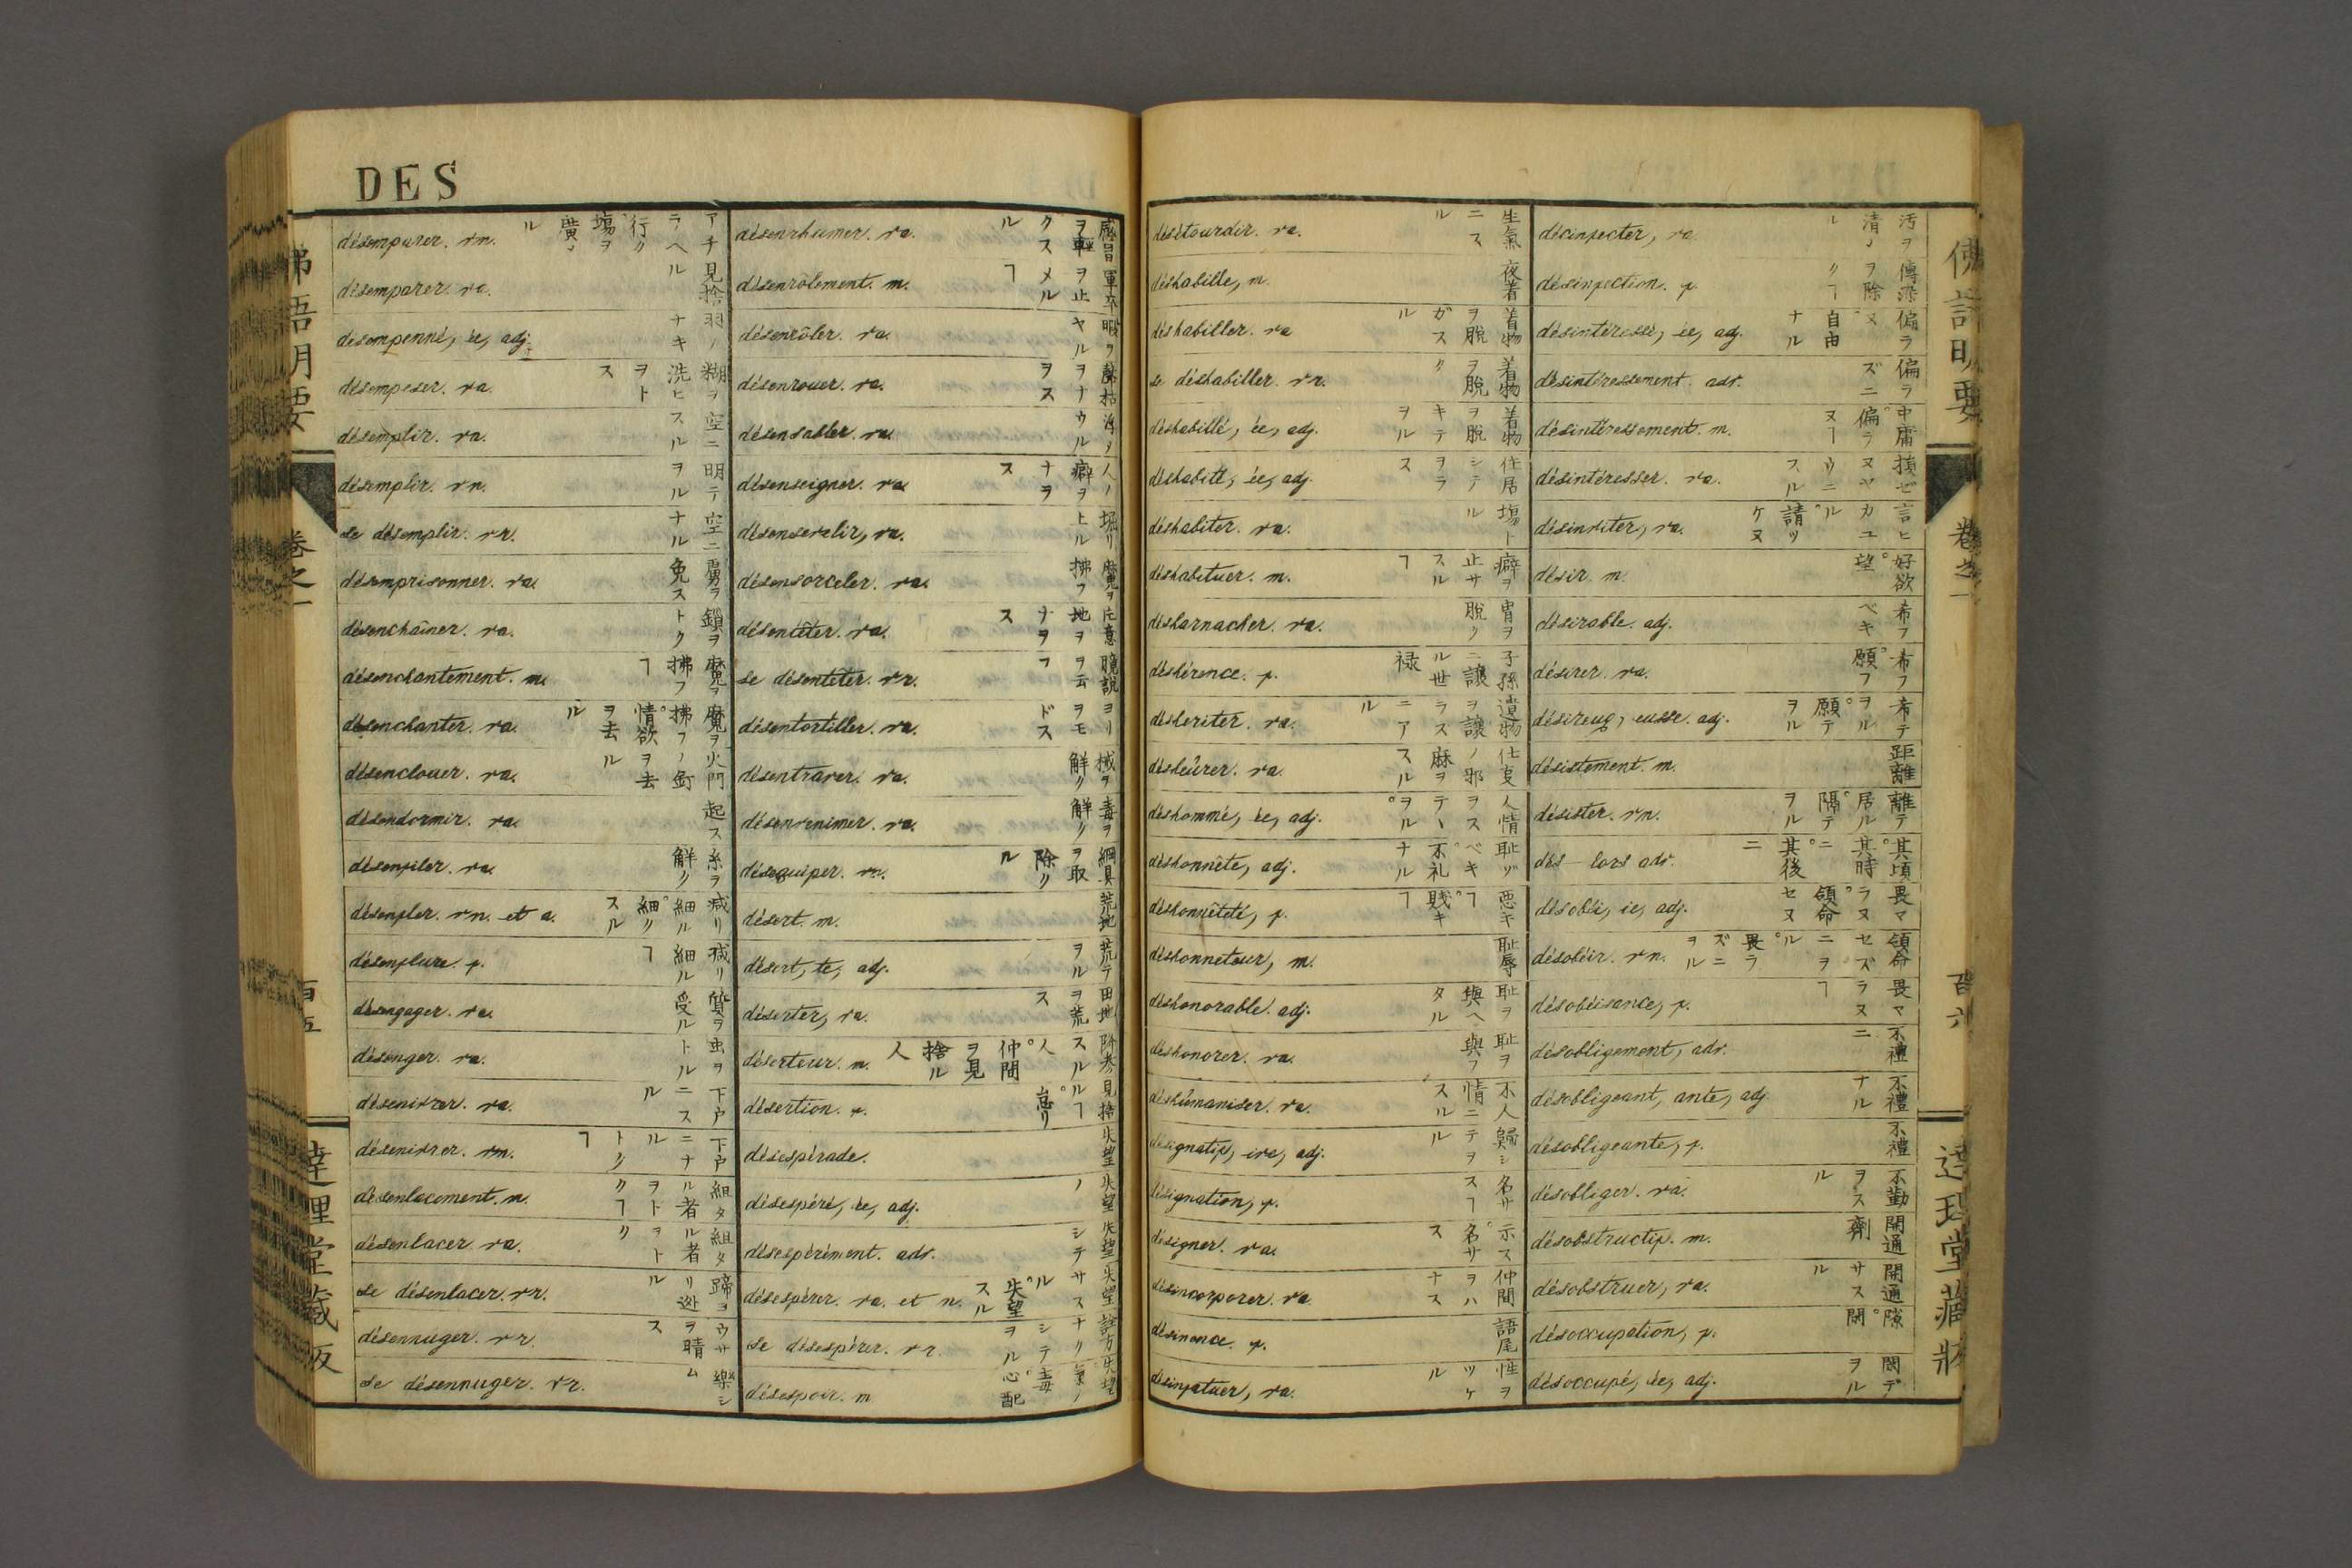 DES
désemparer. vn.
désemparer. va. 見捨ル
désempenné, ée, adj. 羽ノナキ
désempeser. va. 糊ヲ洗ヒヲトス
désemplir. va. 空ニスル
désemplir. vn. 明テヲル
se désemplir. vr. 空ニナル
désemprisonner. va.
désenchaîner. va. 鎖ヲトク
désenchantement. m. 魔ヲ拂フヿ
désenchanter. va. 魔ヲ拂フ。情欲ヲ去ル
désenclouer. va. 火門ノ釘ヲ去ル
désendormir. va. 起ス
désenfiler. va. 糸ヲ解ク
désenfler. vn. et a. 減リ細ル。細クスル
désenflure. f. 減リ細ルヿ
désengager. va. 質ヲ受ル
désenger. va. 虫ヲトル
désenivrer. va. 下戸ニスル
désenivrer. vn. 下戸ニナル
désenlacement. m. 組タル者ヲトクヿ
désenlacer. va. 組タル者ヲトク
se désenlacer. vr.
désennuyer. vr. ウサヲ晴ス
se désennuyer. vr. 樂シム
désenrhumer. va.
désenrôlement. m. 軍卒ヲ止メルヿ
désenrôler. va. 暇ヲヤル
désenrouer. va.
désensabler. va.
désenseigner. va. 人ノ癖ヲナヲス
désensevelir, va. 堀リ上ル
désensorceler. va. 魔ヲ拂フ
désentêter. va. 片意地ヲナヲス
se désentêter. vr. 臆説ヲ云フ
désentortiller. va. ヨリヲモドス
désentraver. va. 械ヲ解ク
désenvenimer. va. 毒ヲ解ク
deséquiper. vn. 綱具ヲ取除ク
désert. m. 荒地
désert, te, adj. 荒テヲル
déserter, va. 田地ヲ荒ス
déserteur. m. 仲間ヲ見捨ル人
désertion. f. 見捨ルヿ
désespérade. 失望
désespéré, ée, adj. 失望ノ
désespérément. adv. 失望シテ
désespérer. va. et n. 失望サスル。失望スル
se désespérer. vr.
désespoir. m. 失望 氣ノ毒。心配
désétourdir. va. 生氣ニスル
déshabille, m. 夜着
déshabiller. va. 着物ヲ脱ガスル
se déshabiller. vr. 着物ヲ脱ク
déshabillé, ée, adj. 着物ヲ脱キテヲル
déshabité, ée, adj.
déshabiter. va.
déshabituer. m. 癖ヲ止サスルヿ
désharnacher. va. 冑ヲ脱ク
déshérence. f. 子孫ニ讓ル世禄
désheriter. va. 遺物ヲ讓ラスニアル
désheûrer. va. 仕事ノ邪麻ヲスル
déshommé, ée, adj.
déshonnête, adj. 恥ツベキ。不礼ナル
déshonnêteté, f. 惡キヿ。賎キヿ
déshonneteur, m. 恥辱
déshonorable. adj. 恥ヲ與ヘタル
déshonorer. va. 恥ヲ與フ
déshûmaniser. va. 不人情ニスル
désignatif, ive, adj.
désignation, f. 名サスヿ
désigner. va. 示ス。名サス
désincorporer. va. 仲間ヲハナス
désinence. f. 語尾
désinfatuer, va. 性ヲツケル
désinfecter, va.
désinfection. f. 傳染ヲ除クヿ
désintéressé, ée, adj. 偏ラヌ。自由ナル
désintéressement. adv. 偏ラズニ
désintéressement. m. 中庸。偏ラヌヿ
désintéresser. va. 損ゼヌヤウニスル
désinviter, va.
désir. m. 好欲。望
désirable. adj. 希フベキ
désirer. va. 希フ。願フ
désireug, eusse. adj. 希テヲル。願テヲル
désistement. m. 距離
désister. vn. 離テ居ル。隔テヲル
dès-lors adv. 其頃。其時ニ。其後ニ
désobéi, ie, adj. 畏マラヌ。領命セヌ
désobéir. vn. 領命セズニヲル。畏ラズニヲル
désobéisance, f. 畏マラヌヿ
désobligement, adv. 不禮ニ
désobligeant, ante, adj. 不禮ナル
désobligeante, f. 不禮
désobliger. va.
désobstructif. m. 開通劑
désobstruer, va. 開通サスル
désoccupation, f. 隙。閑
désoccupé, ée, adj. 閑デヲル
卷之一
達理堂藏版